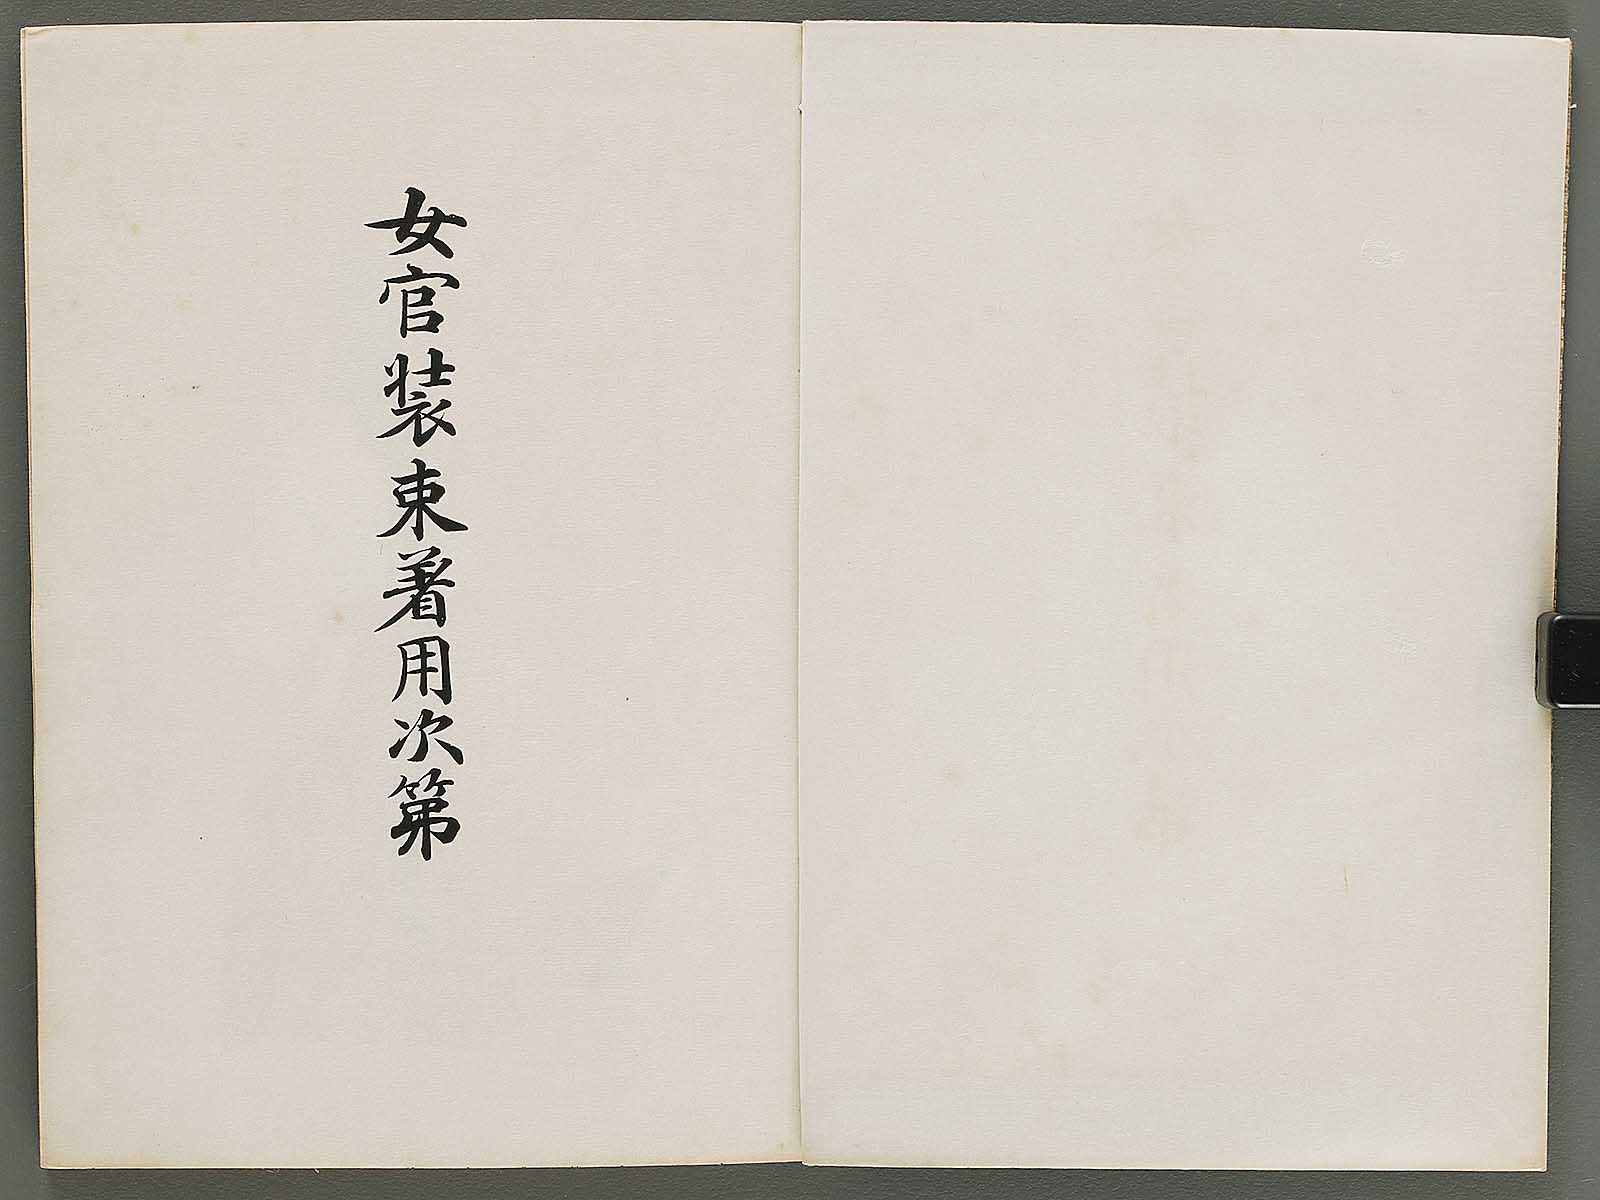 女官装束著用次第